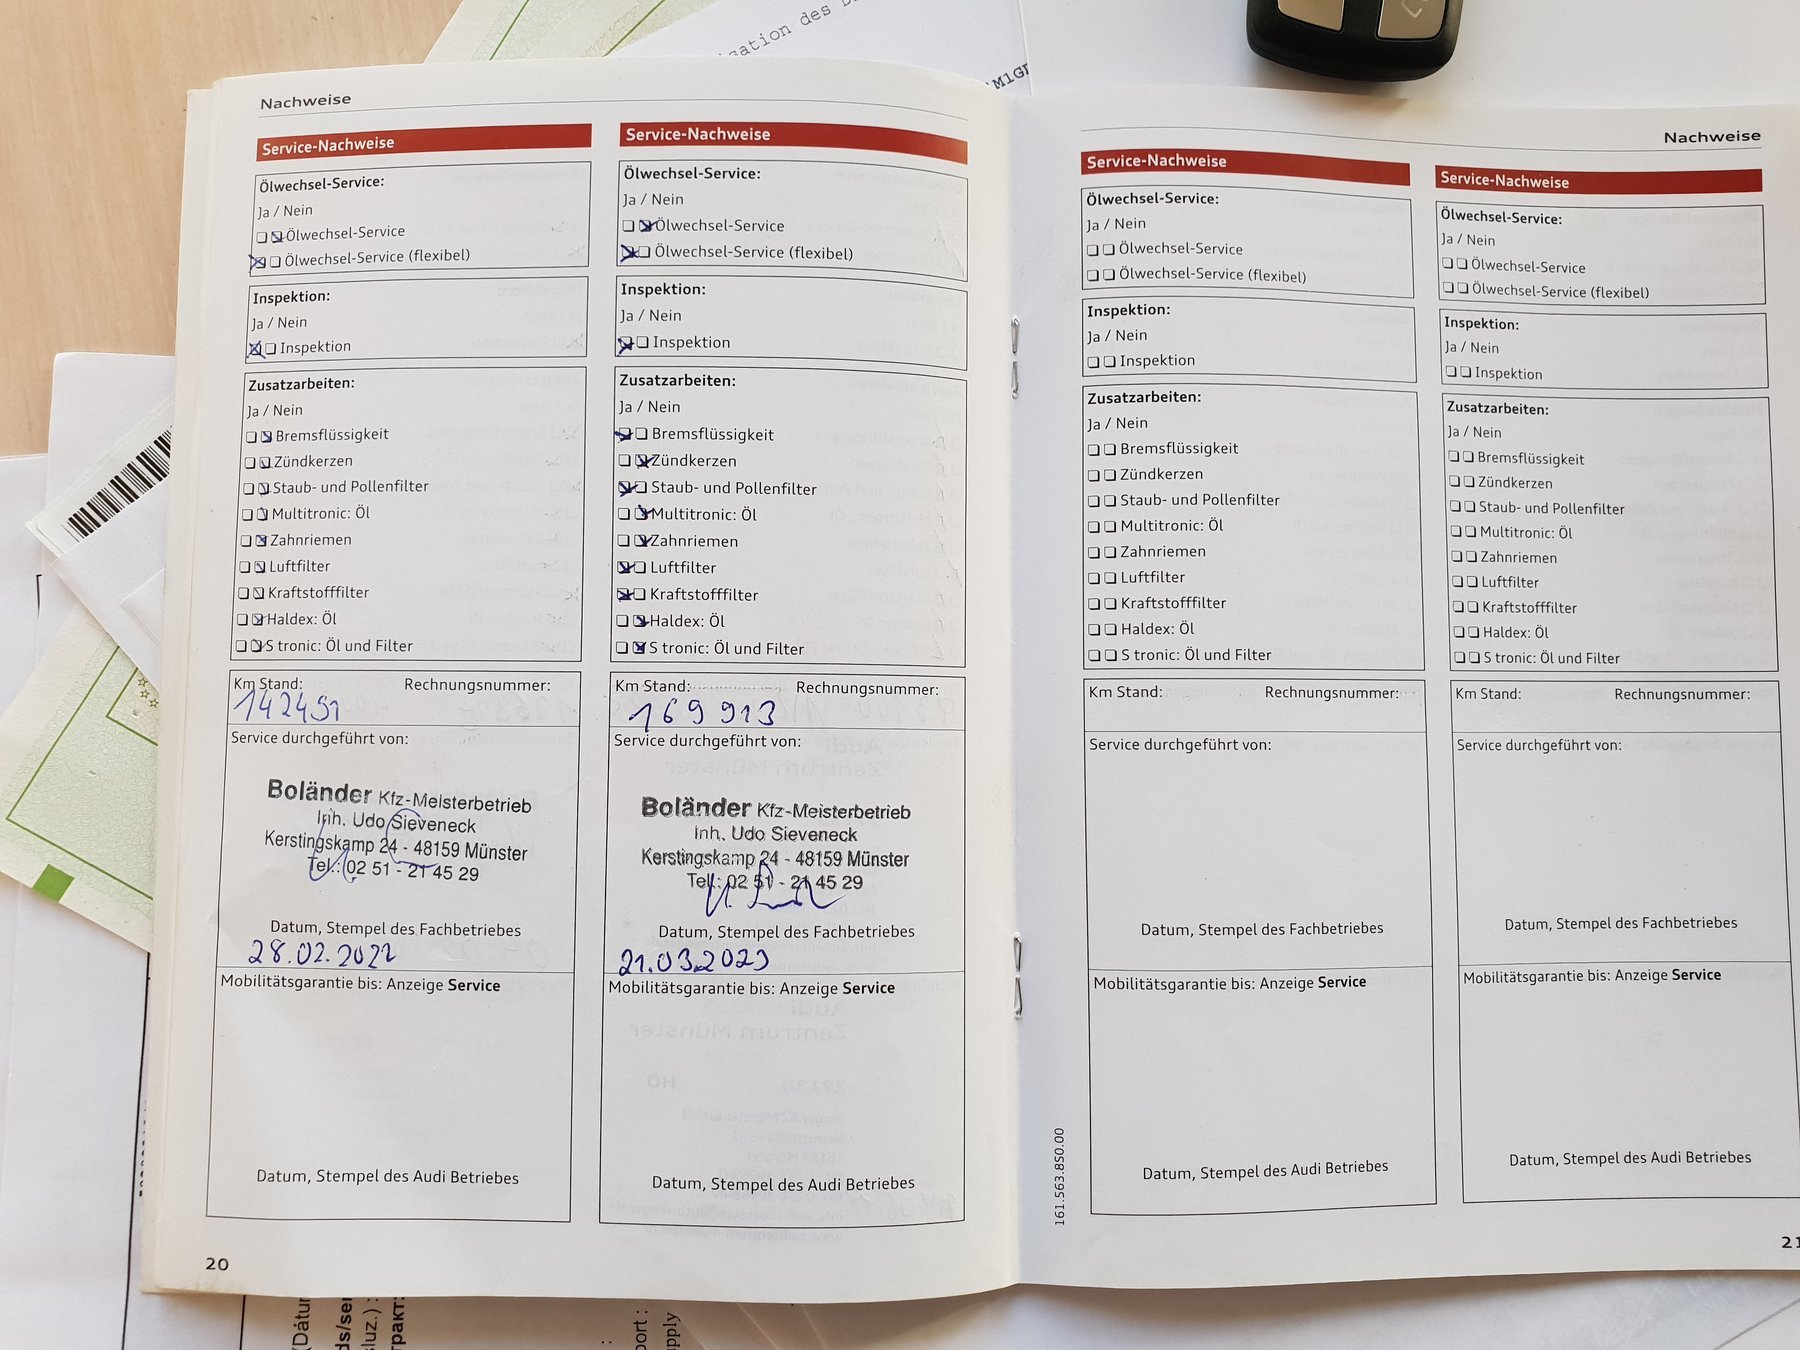 Nachweise
Service-Nachweise
Ölwechsel-Service:
Ja / Nein
Ölwechsel-Service
Ölwechsel-Service (flexibel)
Inspektion:
Ja / Nein
Inspektion
Zusatzarbeiten:
Ja / Nein
Bremsflüssigkeit
Zündkerzen
Staub- und Pollenfilter
Multitronic: Öl
Zahnriemen
Luftfilter
Kraftstofffilter
Haldex: Öl
S tronic: Öl und Filter
Km Stand: Rechnungsnummer:
142491
Service durchgeführt von:
Boländer Kfz-Meisterbetrieb
Inh. Udo Sieveneck
Kerstingskamp 24 - 48159 Münster
Tel.: 02 51 - 21 45 29
Datum, Stempel des Fachbetriebes
28.02.2022
Mobilitätsgarantie bis: Anzeige Service
Datum, Stempel des Audi Betriebes
20
Service-Nachweise
Ölwechsel-Service:
Ja / Nein
Ölwechsel-Service
Ölwechsel-Service (flexibel)
Inspektion:
Ja / Nein
Inspektion
Zusatzarbeiten:
Ja / Nein
Bremsflüssigkeit
Zündkerzen
Staub- und Pollenfilter
Multitronic: Öl
Zahnriemen
Luftfilter
Kraftstofffilter
Haldex: Öl
S tronic: Öl und Filter
Km Stand: Rechnungsnummer:
169913
Service durchgeführt von:
Boländer Kfz-Meisterbetrieb
Inh. Udo Sieveneck
Kerstingskamp 24 - 48159 Münster
Tel.: 02 51 - 21 45 29
Datum, Stempel des Fachbetriebes
21.03.2023
Mobilitätsgarantie bis: Anzeige Service
Datum, Stempel des Audi Betriebes
Nachweise
Service-Nachweise
Ölwechsel-Service:
Ja / Nein
Ölwechsel-Service
Ölwechsel-Service (flexibel)
Inspektion:
Ja / Nein
Inspektion
Zusatzarbeiten:
Ja / Nein
Bremsflüssigkeit
Zündkerzen
Staub- und Pollenfilter
Multitronic: Öl
Zahnriemen
Luftfilter
Kraftstofffilter
Haldex: Öl
S tronic: Öl und Filter
Km Stand: Rechnungsnummer:
Service durchgeführt von:
Datum, Stempel des Fachbetriebes
Mobilitätsgarantie bis: Anzeige Service
Datum, Stempel des Audi Betriebes
161.563.850.00
Service-Nachweise
Ölwechsel-Service:
Ja / Nein
Ölwechsel-Service
Ölwechsel-Service (flexibel)
Inspektion:
Ja / Nein
Inspektion
Zusatzarbeiten:
Ja / Nein
Bremsflüssigkeit
Zündkerzen
Staub- und Pollenfilter
Multitronic: Öl
Zahnriemen
Luftfilter
Kraftstofffilter
Haldex: Öl
S tronic: Öl und Filter
Km Stand: Rechnungsnummer:
Service durchgeführt von:
Datum, Stempel des Fachbetriebes
Mobilitätsgarantie bis: Anzeige Service
Datum, Stempel des Audi Betriebes
21